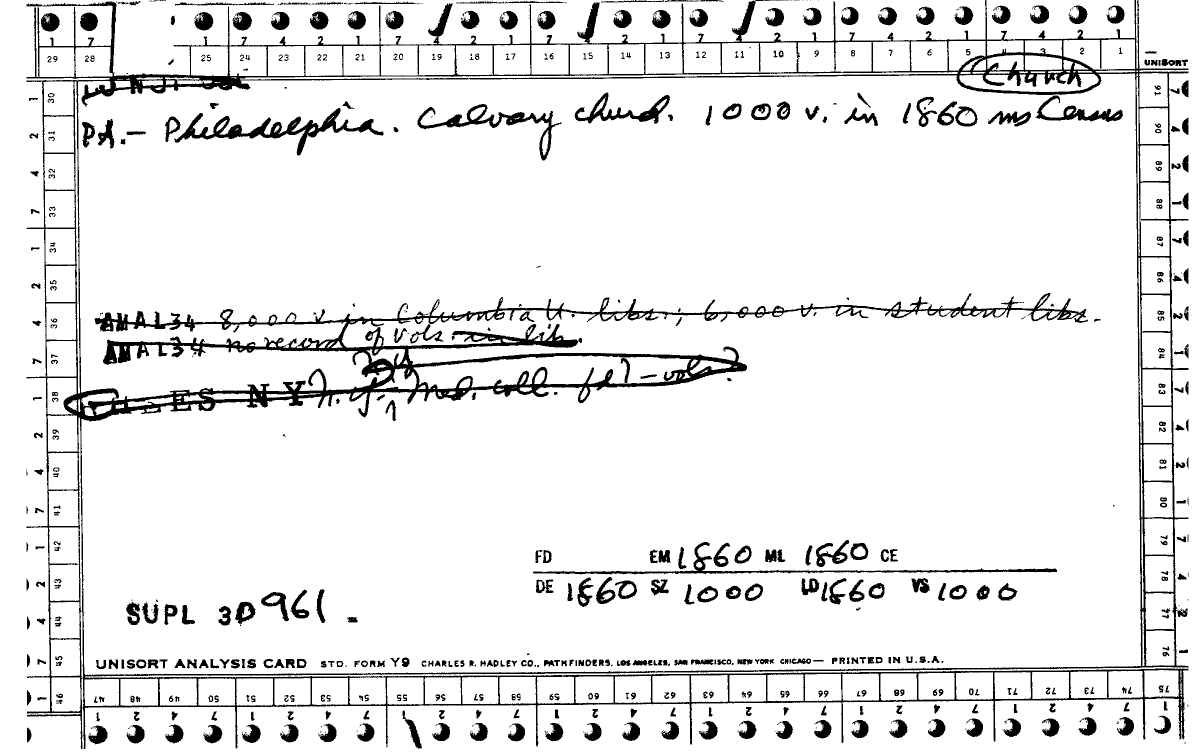 1 7 1 7 4 2 1 7 4 2 1 7 4 2 1 7 4 2 1 7 4 2 1
29 28 25 24 23 22 21 20 19 18 17 16 15 14 13 12 11 10 9 8 7 6 5 4 3 2 1
UNISORT
Church
PA. - Philadelphia. Calvary church. 1000 v. in 1860 ms Census
AMAL34 8,000 v. in Columbia U. libs.; 6,000 v. in student libs.
AMAL34 no record of vols in lib.
LES NY N.Y. Med. coll. fd ? - vols?
FD EM 1860 ML 1860 CE
DE 1860 SZ 1000 LD 1860 VS 1000
SUPL 3D 961 -
UNISORT ANALYSIS CARD STD. FORM Y9 CHARLES R. HADLEY CO., PATHFINDERS, LOS ANGELES, SAN FRANCISCO, NEW YORK CHICAGO — PRINTED IN U.S.A.
47 48 49 50 51 52 53 54 55 56 57 58 59 60 61 62 63 64 65 66 67 68 69 70 71 72 73 74 75